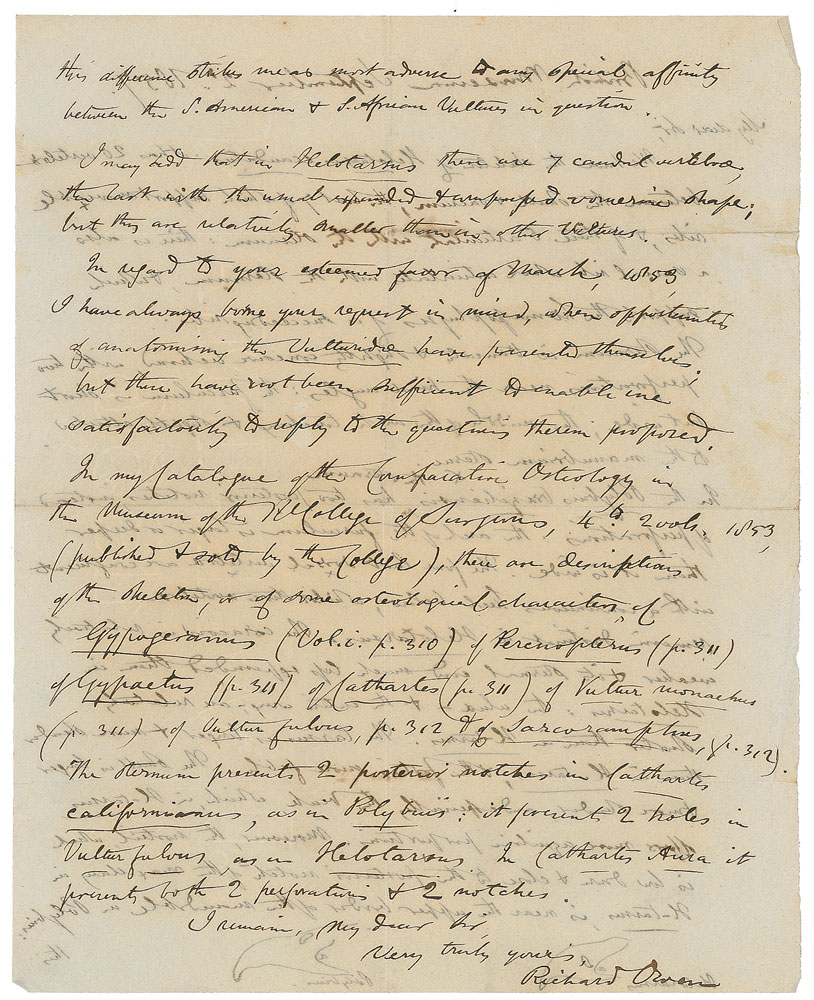 this difference strikes me as most adverse to any special affinity
between the S. American & S. African Vultures in question.
I may add that in Helotarsus there are 7 caudal vertebræ,
the last with the usual expanded & compressed vomerine shape;
but they are relatively smaller than in other Vultures.
In regard to your esteemed favor of March, 1853,
I have always borne your request in mind, when opportunities
of anatomising the Vulturidæ have presented themselves;
but these have not been sufficient to enable me
satisfactorily to reply to the questions therein proposed.
In my Catalogue of the Comparative Osteology in
the Museum of the Rl College of Surgeons, 4to. 2 vols. 1853,
(published & sold by the College), there are descriptions
of the skeleton, or of some osteological characters, of
Gypogeranus (Vol. i. p. 310) of Percnopterus (p. 311)
of Gypaetus (p. 311) of Cathartes (p. 311) of Vultur monachus
(p. 311) of Vultur fulvus, p. 312 & of Sarcoramphus, (p. 312).
The sternum presents 2 posterior notches in Cathartes
californianus, as in Polybuii: it presents 2 holes in
Vultur fulvus, as in Helotarsus. In Cathartes Aura it
presents both 2 perforations & 2 notches.
I remain, my dear Sir,
Very truly your's,
Richard Owen